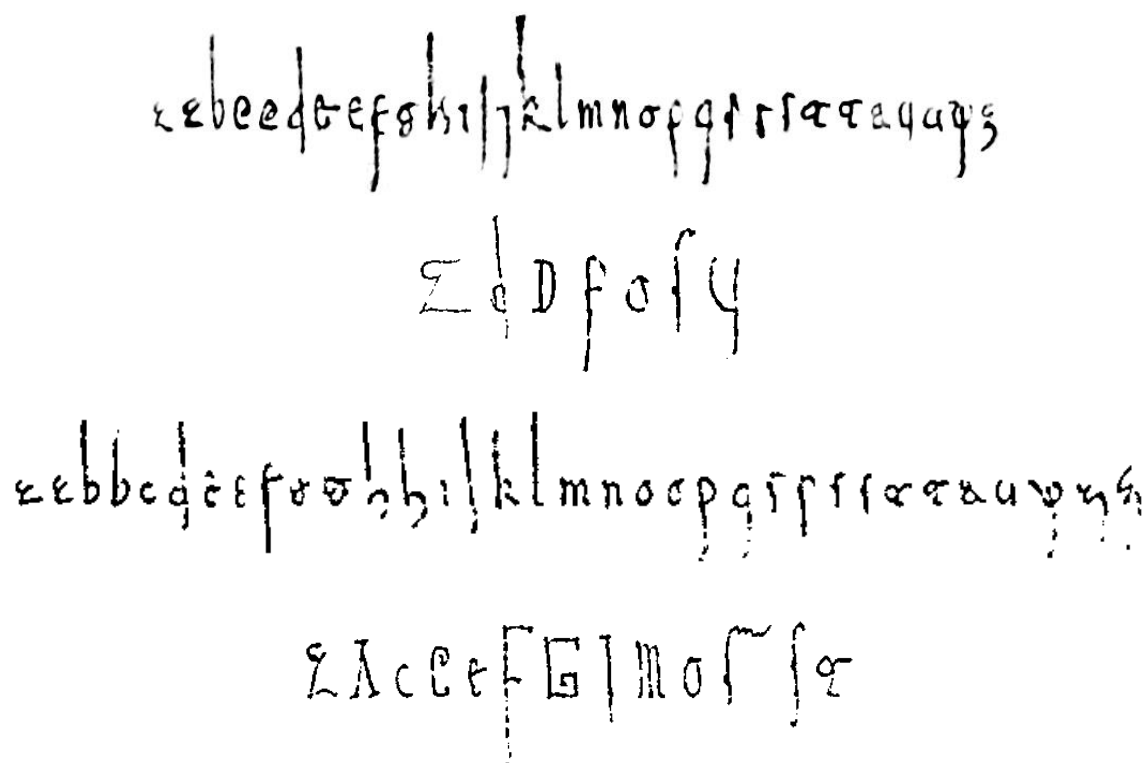 a a b c c d e e f g h i j j k l m n o p q r r ſ t t a u u y z
A d D F O S U
a a b b c d e e f g g h h i j k l m n o o p q r r ſ ſ t t a u y z z
A A C C E F G I M O S S T